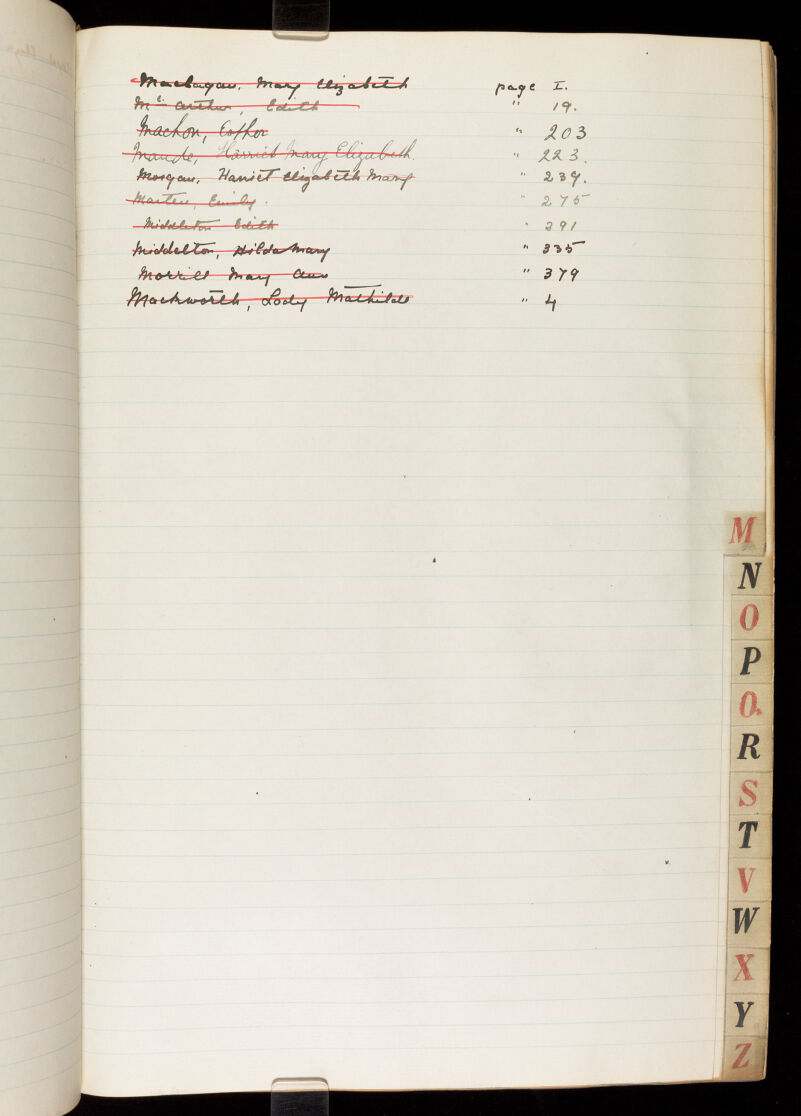 Mary Elizabeth page I.
Mc Arthur, Edith " 19.
Machon, Esther " 203
Maude, Harriet Mary Elizabeth. " 223.
Morgan, Harriet Elizabeth Mary " 239.
Emily. " 275
Middleton Edith " 391
Middelton, Hilda Mary " 335
Morrill Mary Ann " 379
Mackworth, Lady Mathilde " 4
M
N
O
P
Q.
R
S
T
V
W
X
Y
Z